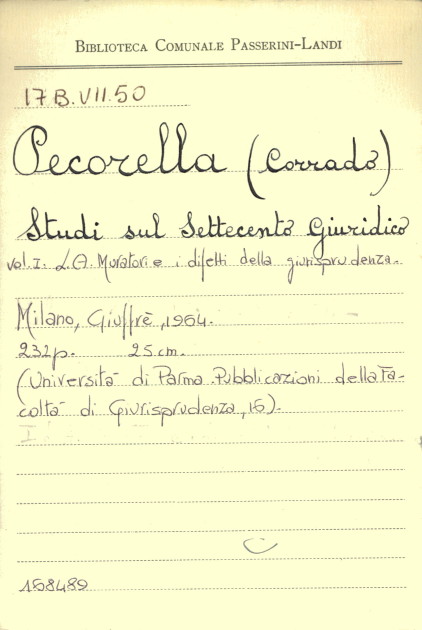 BIBLIOTECA COMUNALE PASSERINI-LANDI
17 B.VII.50
Pecorella (Corrado)
Studi sul Settecento Giuridico
vol. I. L.A. Muratori e i difetti della giurisprudenza.
Milano, Giuffrè, 1964.
232 p. 25 cm.
(Università di Parma. Pubblicazioni della Fa-
coltà di Giurisprudenza, 16).
I
158489